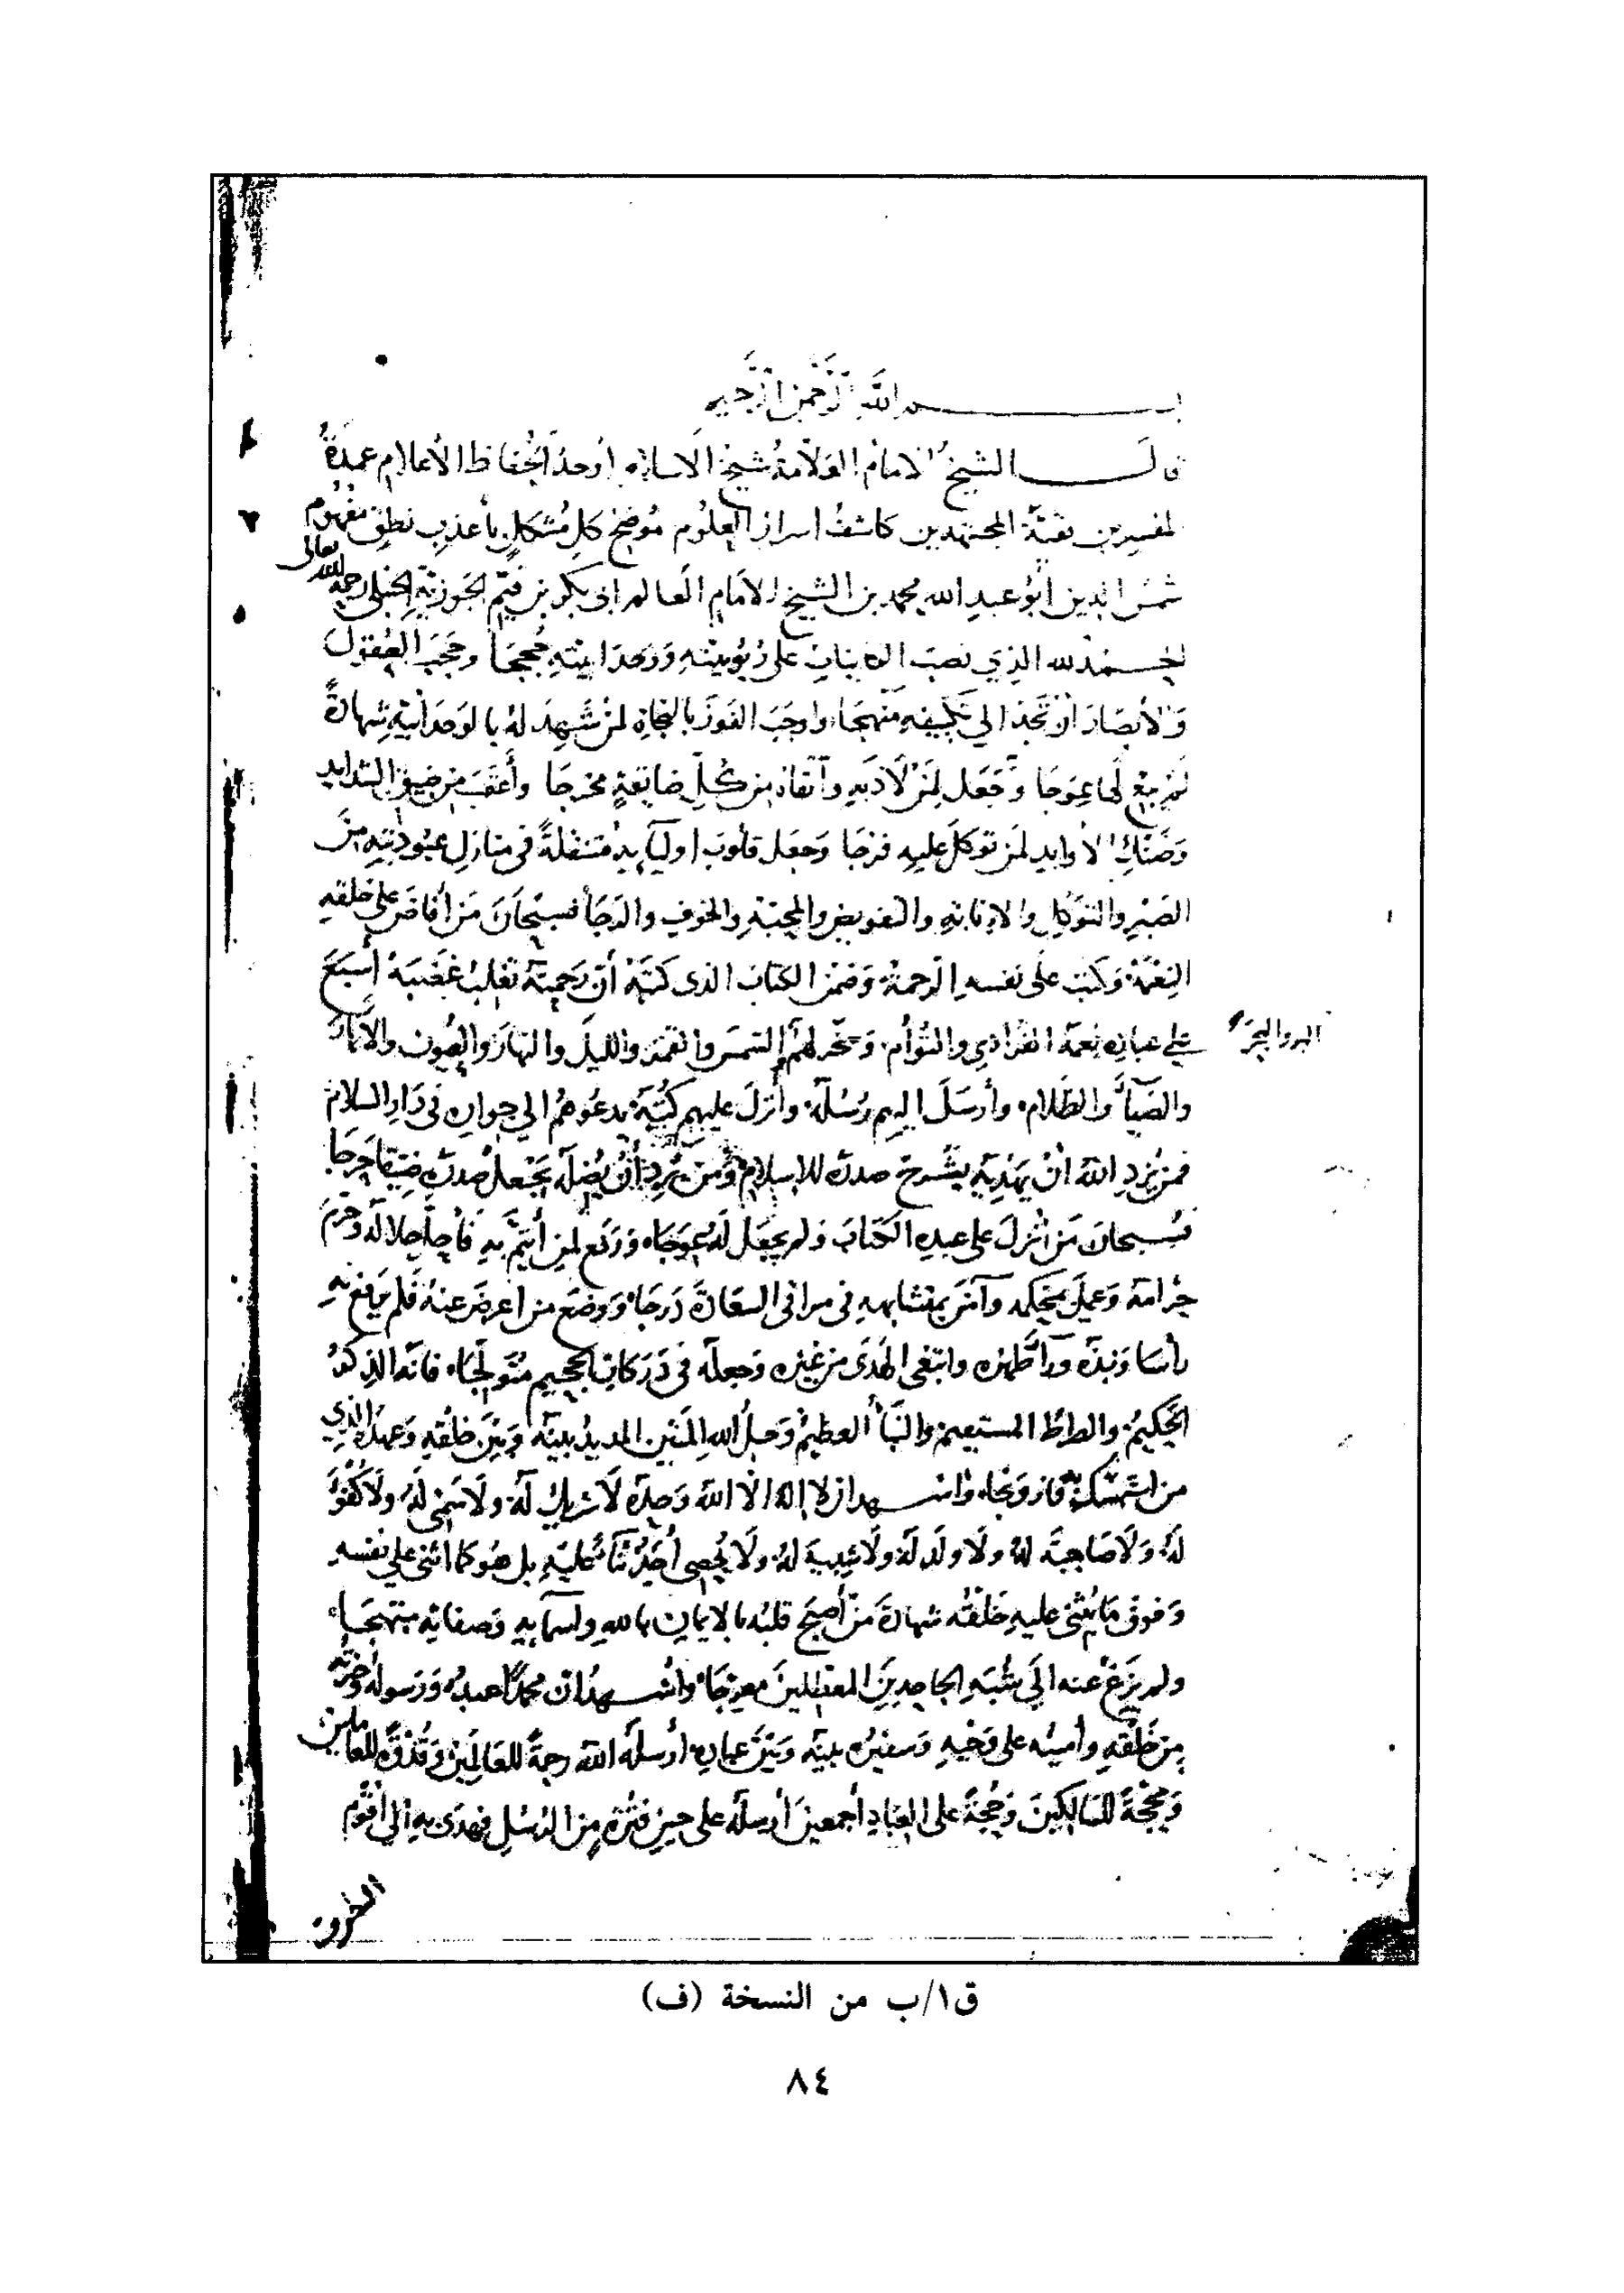 بسم الله الرحمن الرحيم
قال الشيخ الامام العلامة شيخ الاسلام أوحد الحفاظ الأعلام عمدة
المفسرين بقية المجتهدين كاشف أسرار العلوم موضح كل مشكل بأعذب نطق مفهوم
شمس الدين أبو عبد الله محمد بن الشيخ الامام العالم ابي بكر بن قيم الجوزية الحنبلي رحمه الله تعالى
الحمد لله الذي نصب الكاينات على ربوبيته ووحدانيته حججا وحجب العقول
والأبصار أن تجد الي تكييفه منهجا وأوجب الفوز بالنجاة لمن شهد له بالوحدانية شهادة
لم يبغ لها عوجا وجعل لمن لاذ به وآتقاه من كل ضايقة مخرجا وأعقب من ضيق الشدايد
وضنك الاوابد لمن توكل عليه فرجا وجعل قلوب اوليآيه متنقلة في منازل عبوديته من
الصبر والتوكل والانابة والتفويض والمحبة والخوف والرجا فسبحان من أفاض على خلقه
النعمة وكتب على نفسه الرحمة وضمن الكتاب الذي كتبه أن رحمته تغلب غضبه أسبغ
على عباده نعمه الفرادي والتوأم وسخر لهم الشمس والقمر والليل والنهار والعيون والأنهار
البر والبحر
والضيآ والظلام وأرسل اليهم رسله وأنزل عليهم كتبه يدعوهم الي جواره في دار السلام
فمن يرد الله أن يهديه يشرح صدره للاسلام ومن يرد أن يضله يجعل صدره ضيقا حرجا
فسبحان من أنزل على عبده الكتاب ولم يجعل له عوجا ورفع لمن أيتم به فأحل حلاله وحرم
حرامه وعمل بمحكمه وآمن بمتشابهه في مراقي السعادة درجا ووضع من أعرض عنه فلم يرفع به
رأسا ونبذه ورآ ظهره وابتغى الهدى من غيره وجعله في دركات الجحيم متولجا فانه الذكر
الحكيم والصراط المستقيم والنبأ العظيم وحبل الله المتين المديد بينه وبين خلقه وعهده الذي
من استمسك به فاز ونجا وأشهد ان لا إله الا الله وحده لا شريك له ولا سمي له ولا كفؤ
له ولا صاحبة له ولا ولد له ولا شبيه له ولا يحصي أحد ثنآ عليه بل هو كما اثنى على نفسه
وفوق ما يثني عليه خلقه شهادة من أصبح قلبه بالايمان بالله واسمآيه وصفاته مبتهجا
ولم يزغ عنه إلى شبه الجاحدين المعطلين معرجا وأشهد أن محمدا عبده ورسوله وخيرته
من خلقه وأمينه على وحيه وسفيره بينه وبين عباده أرسله الله رحمة للعالمين وقدوة للعاملين
ومحجة للسالكين وحجة على العباد أجمعين أرسله على حين فترة من الرسل فهدى به إلى أقوم
الطرق
ق١/ب من النسخة (ف)
٨٤